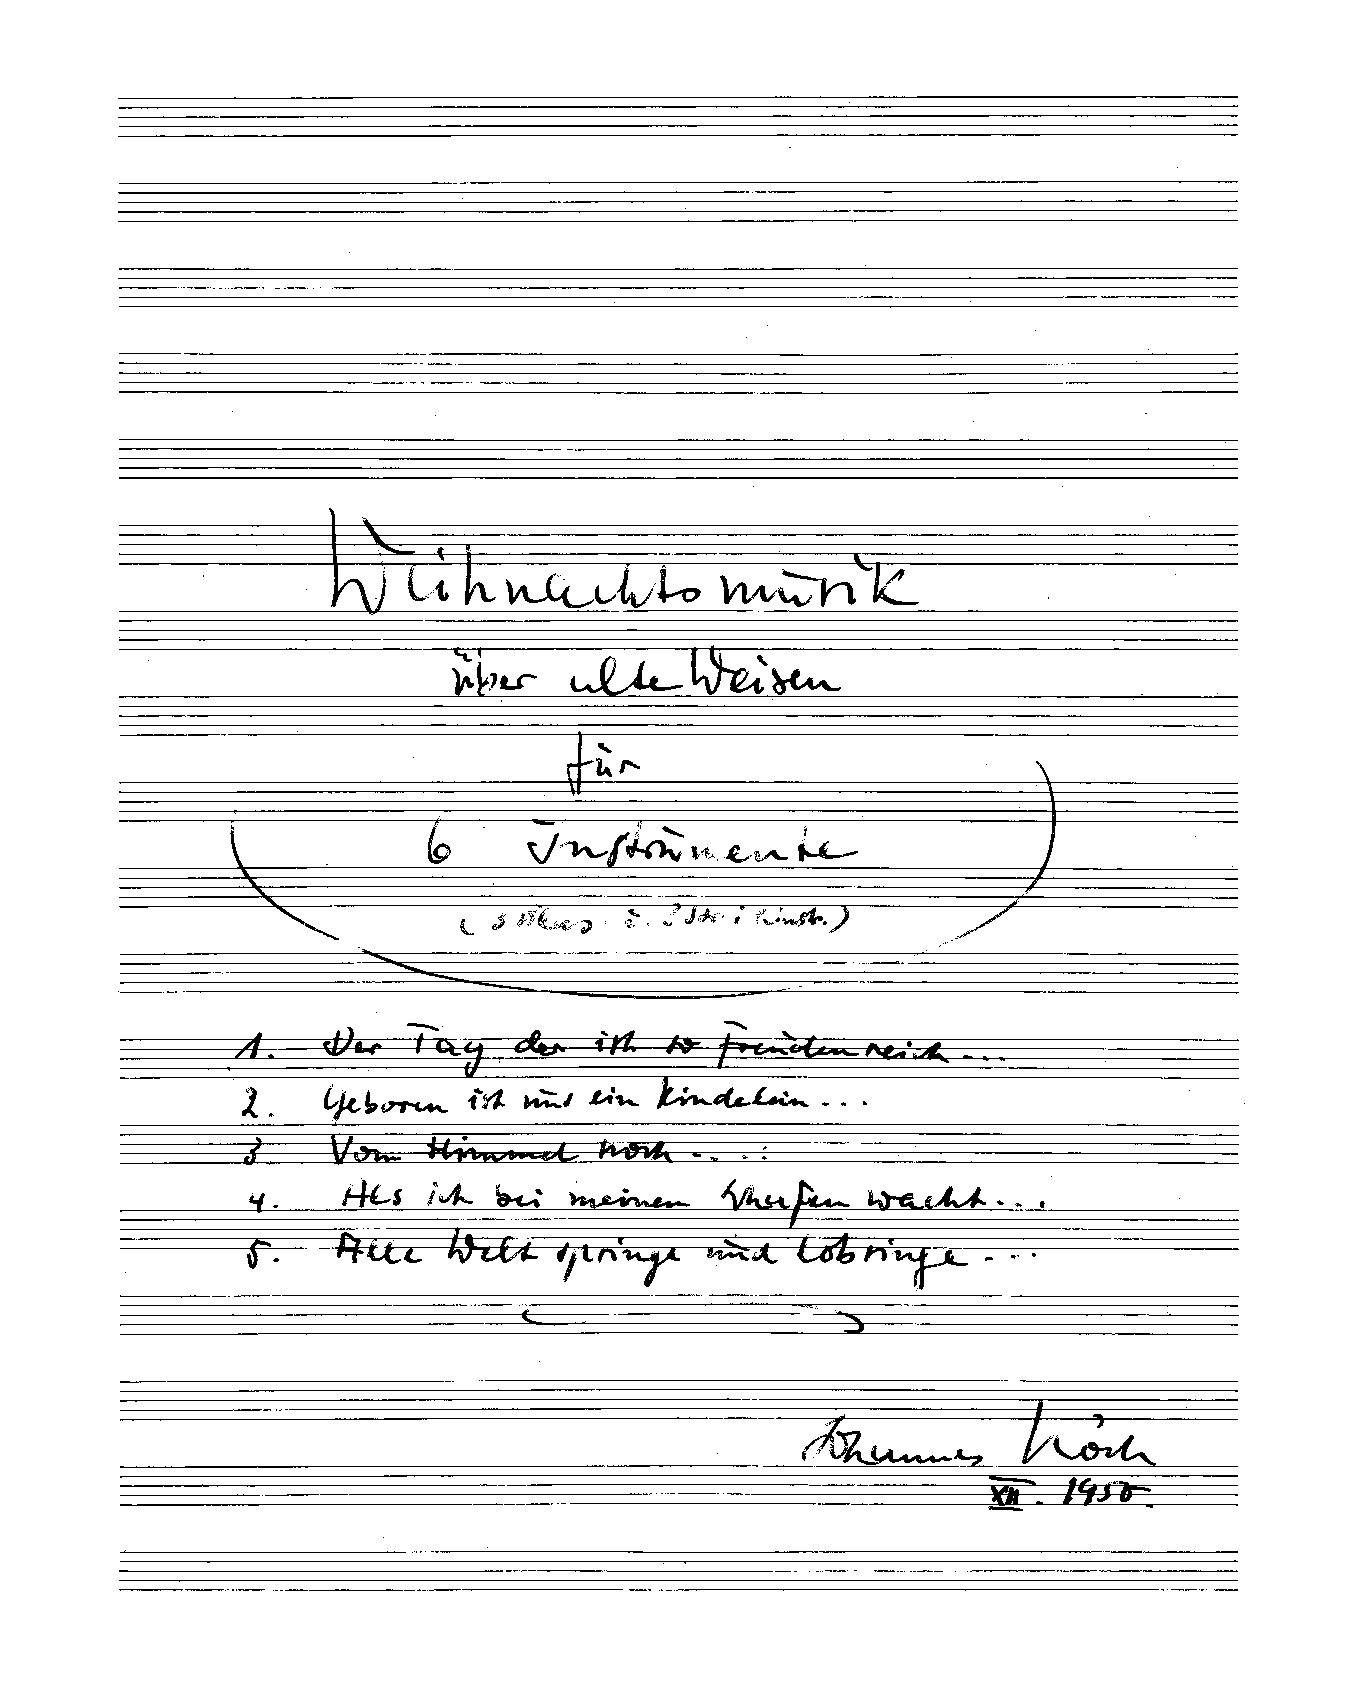 Weihnachtsmusik
über alte Weisen
für
6 Instrumente
1. Der Tag der ist so freudenreich...
2. Geboren ist uns ein Kindelein...
3. Vom Himmel hoch.....
4. Als ich bei meinen Schafen wacht...
5. Alle Welt springe und lobsinge...
Johannes Koch
XII. 1950.